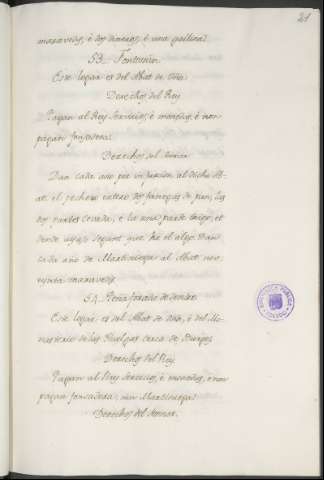 21
maravedis, é dos dineros, é una gallina.
53. Fonturvin
Este logar es del Abat de Oña.
Derechos del Rey
Pagan al Rey servicios, é monedas, é non
pagan fonsadera.
Derechos del Sennor
Dan cada año por infurcion al dicho Ab-
at el pechero entero dos fanegas de pan, las
dos partes cevada, é la una parte trigo, et
dende ayuso segunt que ha el algo. Dan
cada año de Martiniega al Abat
maravedis
54. Peña forado de
Este logar es del Abat de Oña, é del Mo-
nasterio de las Huelgas cerca de Burgos
Derechos del Rey
Pagan al Rey servicios, é monedas, é non
pagan fonsadera, nin Martiniega.
Derechos del Sennor.
BIBLIOTECA PUBLICA
TOLEDO